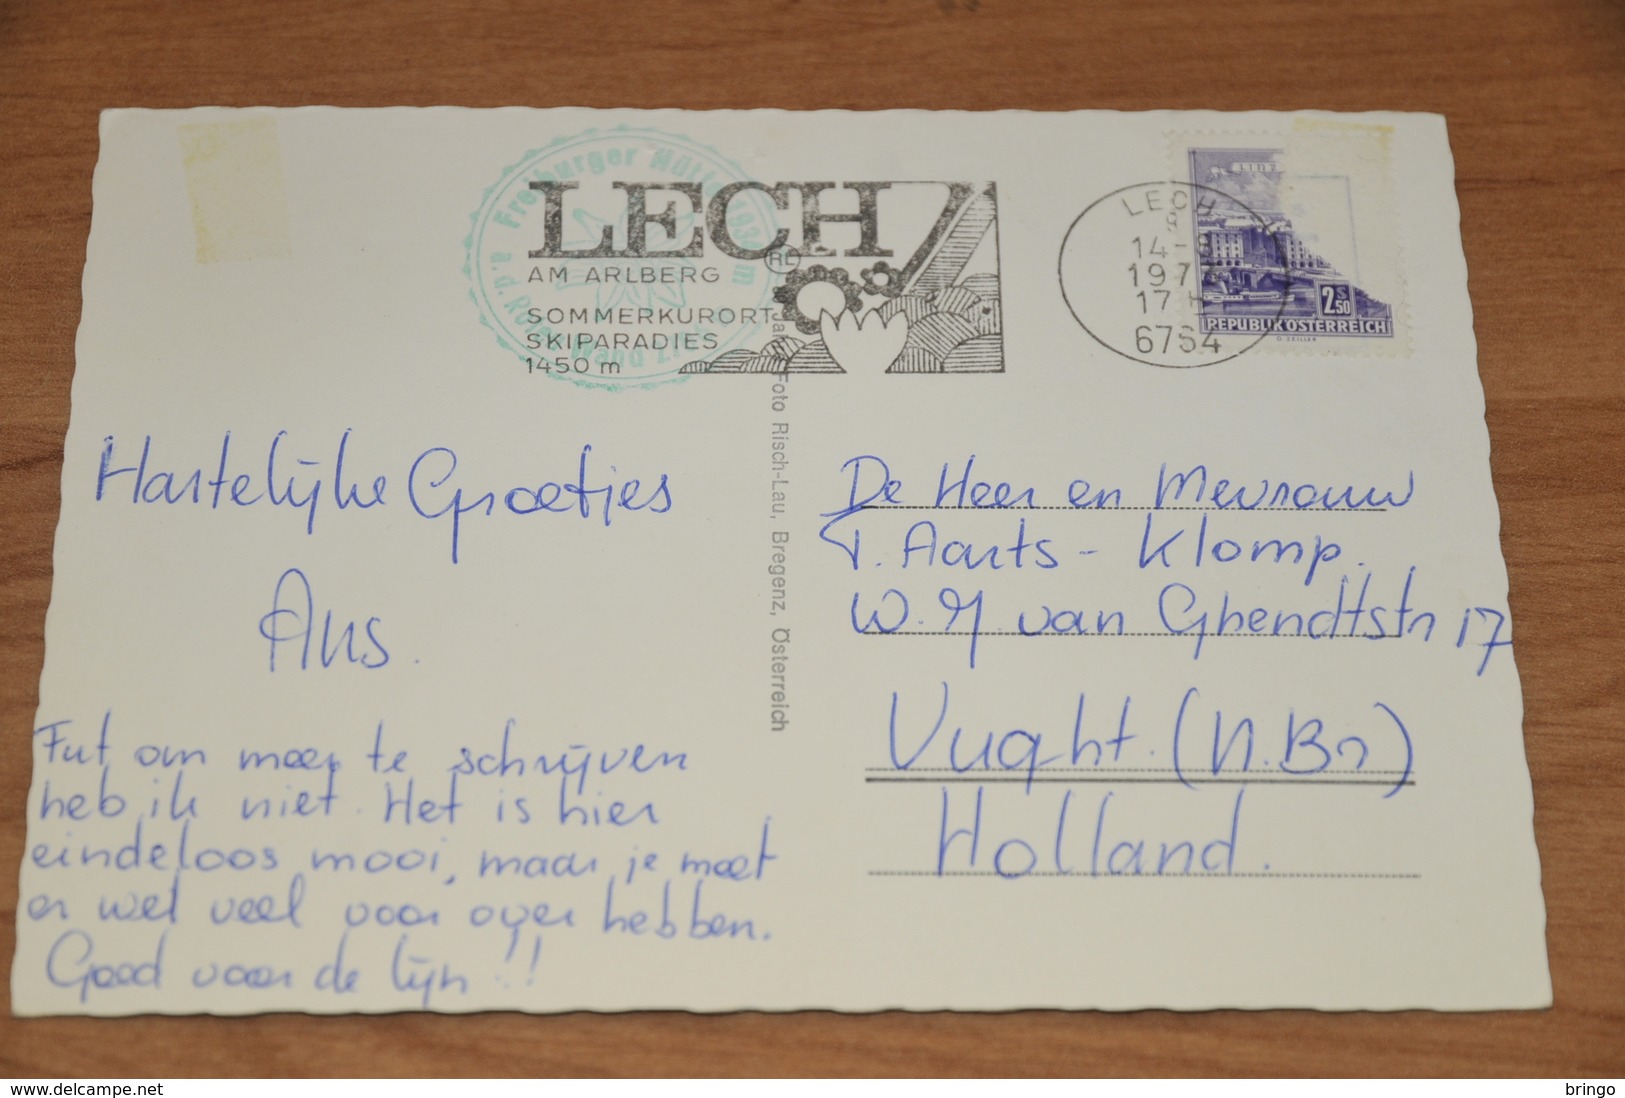 Freiburger Hütte
LECH
AM ARLBERG
SOMMERKURORT
SKIPARADIES
1450 m
RL
LECH
14-8
197
17
6764
LINZ
2 S 50
REPUBLIK ÖSTERREICH
Foto Risch-Lau, Bregenz, Österreich
Hartelijke Groetjes
Ans.
Fut om meer te schrijven
heb ik niet. Het is hier
eindeloos mooi, maar je moet
er wel veel voor over hebben.
Goed voor de lijn!!
De Heer en Mevrouw
T. Aarts - Klomp.
W. M. van Ghendtstr 17
Vught. (N.Br)
Holland.
www.delcampe.net
bringo